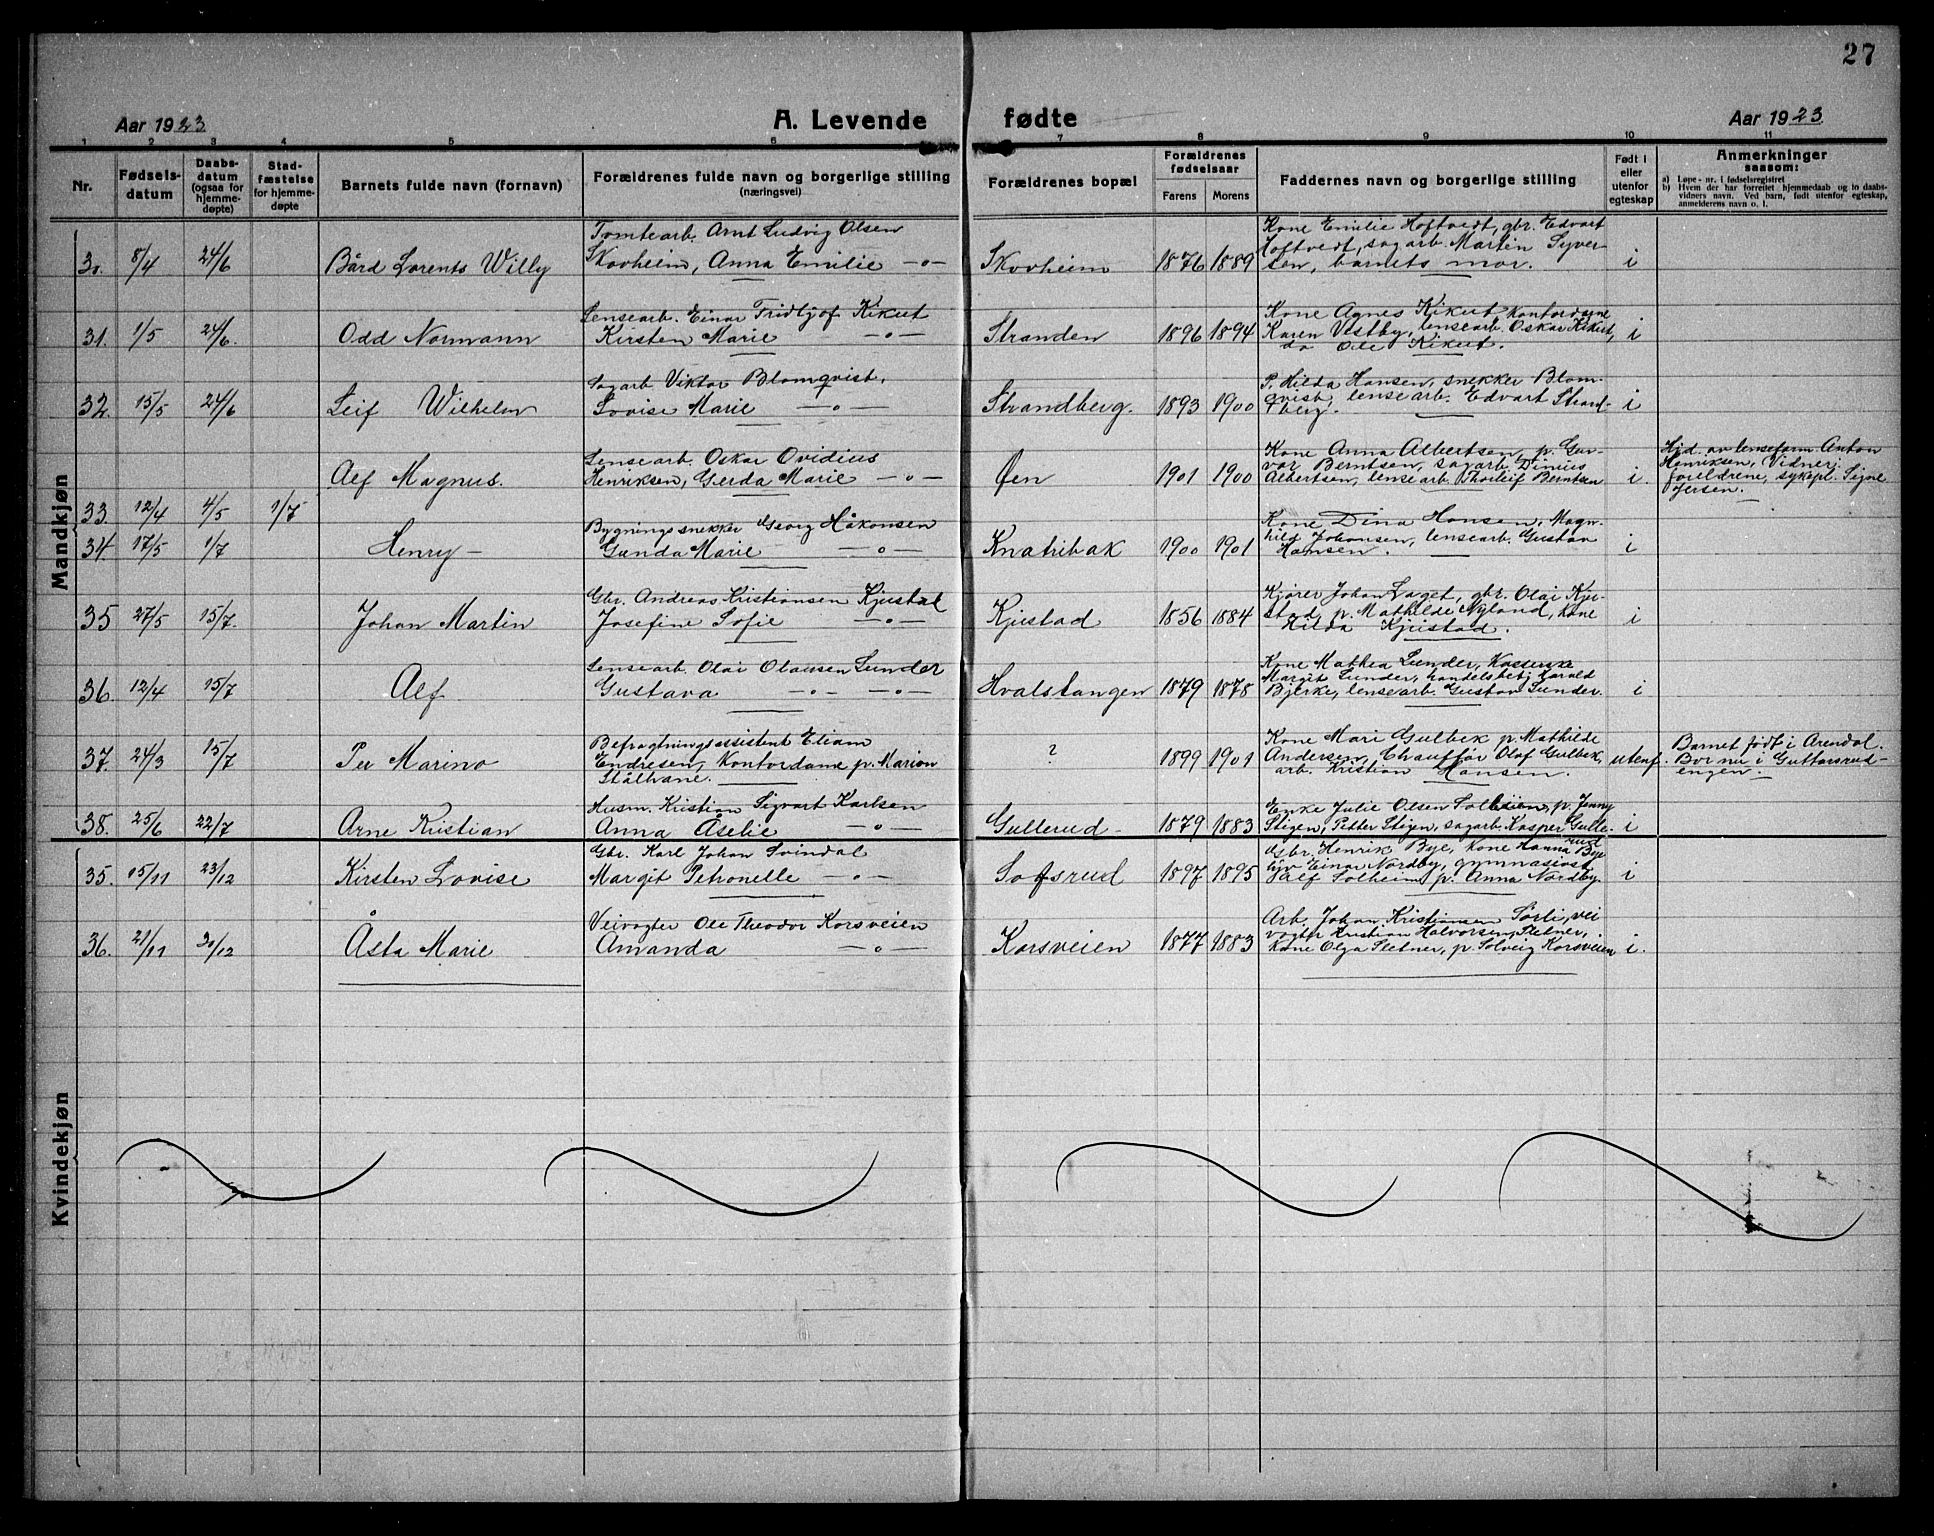 27
Aar 1923 A. Levende fødte Aar 1923
1 2 3 4 5 6 7 8 9 10 11
Nr. Fødselsdatum Daabsdatum (ogsaa for hjemmedøpte) Stadfæstelse for hjemmedøpte Barnets fulde navn (fornavn) Forældrenes fulde navn og borgerlige stilling (næringsvei) Forældrenes bopæl Forældrenes fødselsaar Farens Morens Faddernes navn og borgerlige stilling Født i eller utenfor egteskap Anmerkninger saasom:
a) Løpe-nr. i fødselsregistret
b) Hvem der har forrettet hjemmedaab og to daabsvidners navn. Ved barn, født utenfor egteskap, anmelderens navn o. l.
Mandkjøn
30. 8/4 24/6 Bård Lorents Willy
Tomtearb. Arnt Ludvig Olsen
Skovheim, Anna Emilie —"—
Skovheim 1876 1889
Kone Emilie Hoftvedt, gbr. Edvart
Hoftvedt, sagarb. Martin Syver-
sen, barnets mor. i
31. 1/5 24/6. Odd Normann
Lensearb. Einar Fridtjof Kikut
Kirsten Marie —"—
Stranden 1896 1894
Kone Agnes Kikut kontordame
Karen Vestby, lensearb. Oskar Kikut,
do Ole Kikut. i
32. 15/5 24/6 Leif Wilhelm
Sagarb. Viktor Blomqvist.
Lovise Marie —"—
Strandberg. 1893 1900
P. Hilda Hansen, snekker Blom-
qvist, lensearb. Edvart Strand-
berg. i
33. 12/4 4/5 1/7 Alf Magnus.
Lensearb. Oskar Ovidius
Henriksen, Gerda Marie —"—
Øen 1901 1900
Kone Anna Albertsen, p. Gun-
vor Berntsen, sagarb. Dinius
Albertsen, lensearb. Thorleif Berntsen i.
Hjd. av lenseform. Anton
Henriksen, Vidner:
foreldrene, sykepl. Signe
34 17/5 1/7 Henry —
Bygningssnekker Georg Håkonsen
Gunda Marie —"—
Knatribak 1900 1901
Kone Dina Hansen, Magn-
hild Johansen, lensearb. Gustav
Hansen. i
35 27/5 15/7. Johan Martin
Gbr. Andreas Kristiansen Kjustad
Josefine Sofie —"—
Kjustad 1856 1884
Kjører Johan Laget, gbr. Olai Kju-
stad p. Mathilde Nyland, kone
Hilda Kjustad. i
36. 12/4 15/7 Alf
Lensearb. Olai Olausen Lunder
Gustava —"— —"—
Hvalstangen 1879 1878
Kone Mathea Lunder, Kasserske
Margit Lunder, handelsbetj. Harald
Bjerke, lensearb. Gustav Lunder. i
37. 24/3 15/7 Per Marino
Befragtningsassistent Eliam
Endresen, Kontordame p. Marion
Stålhane.
? 1899 1901
Kone Mari Gulbek p. Mathilde
Andersen, Chauffør Olaf Gulbek,
arb. Kristian Hansen. utenf.
Barnet født i Arendal.
Bor nu i Guttorsrud-
engen.
38. 25/6 22/7 Arne Kristian
Husm. Kristian Sigvart Karlsen
Anna Åselie —"—
Gullerud- 1879 1883
Enke Julie Olsen Solbsien, p. Jenny
Stigen, Petter Stigen, sagarb. Kasper Gulle-
rud i
Kvindekjøn
35. 15/11 23/12 Kirsten Lovise
Gbr. Karl Johan Svindal
Margit Petronelle —"—
Sofsrud 1897 1895
Gbr. Henrik Bye, kone Hanna Bye
Einar Nordby, gymnasiast
Alf Solheim, p. Anna Nordby. i
36. 21/11 30/12 Åsta Marie
Veivogter Ole Theodor Korsveien
Amanda —"—
Korsveien 1877 1883
Arb. Johan Kristiansen Sørli, vei
vogter Kristian Halvorsen Sletner,
Kone Olga Sletner, p. Solveig Korsveien i.